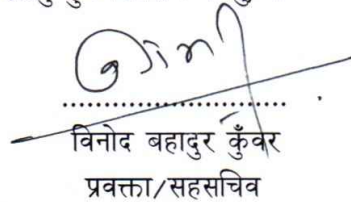 विनोद बहादुर कुँवर
प्रवक्ता/सहसचिव